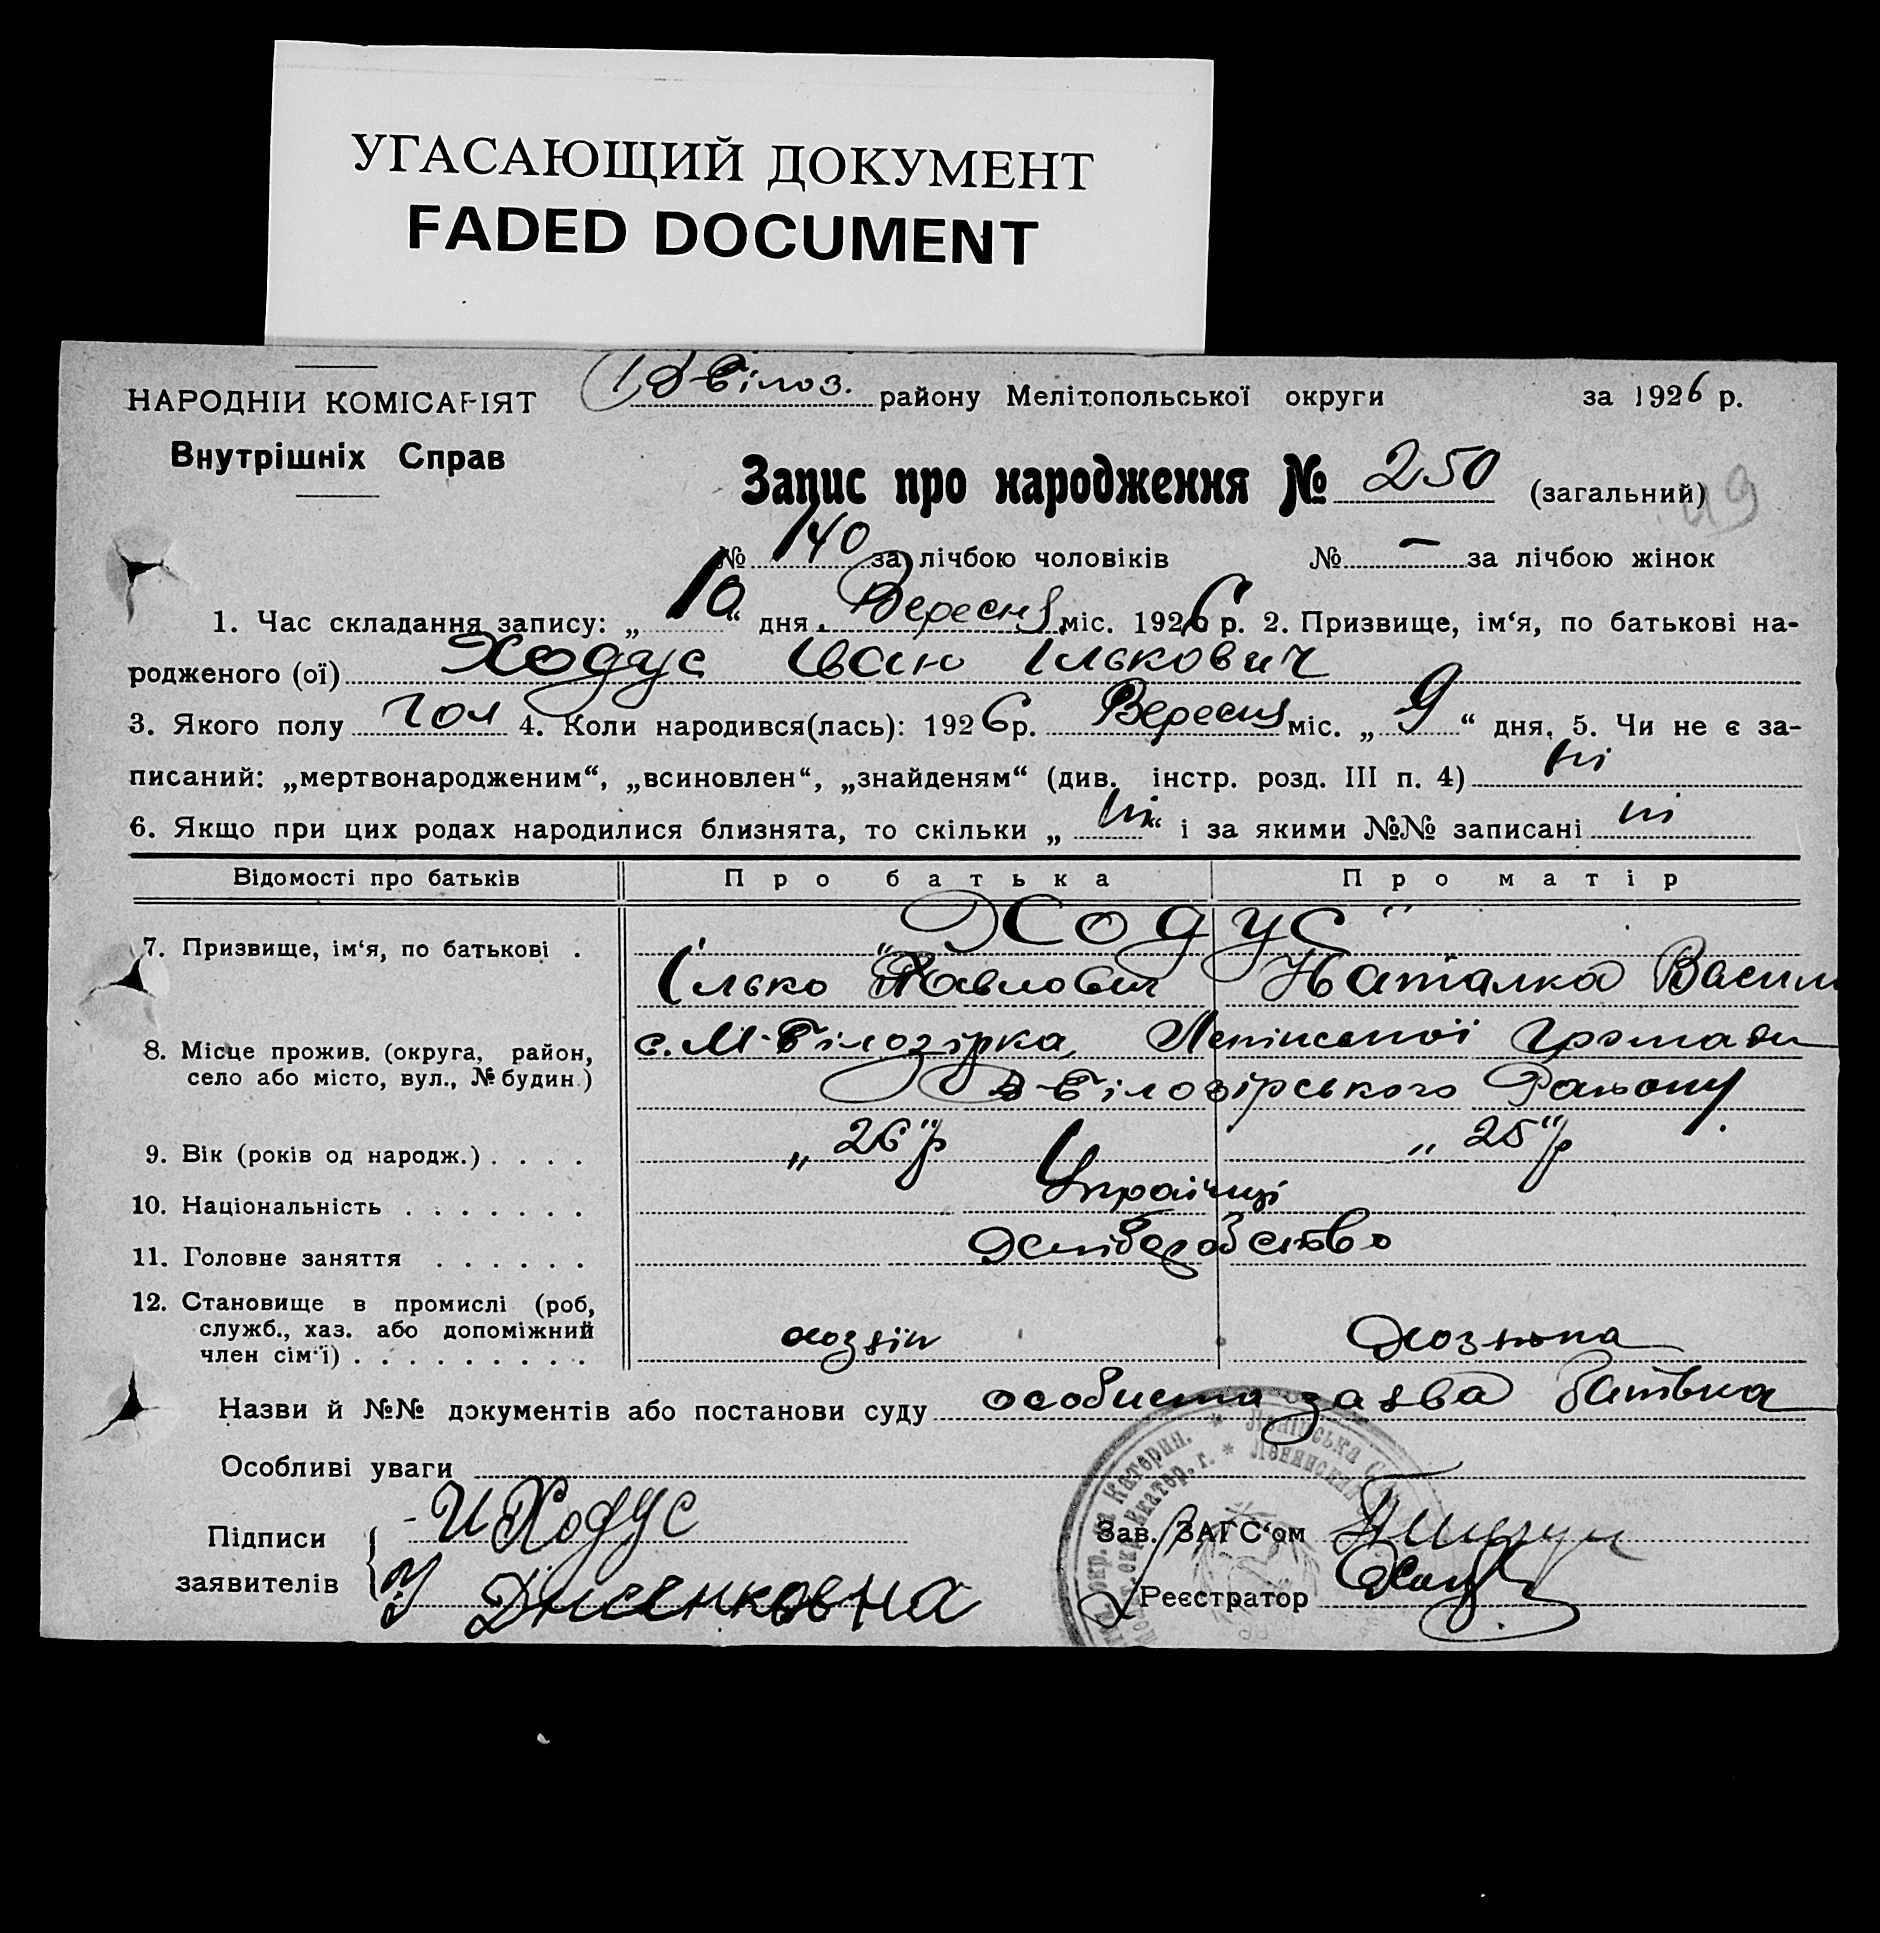 УГАСАЮЩИЙ ДОКУМЕНТ
FADED DOCUMENT
НАРОДНІЙ КОМІСАРІЯТ
Внутрішніх Справ
В-Білоз. району Мелітопольської округи за 1926 р.
Запис про народження № 250 (загальний)
49
№ 140 за лічбою чоловіків № — за лічбою жінок
1. Час складання запису: „10“ дня Вересня міс. 1926 р. 2. Призвище, ім‘я, по батькові на-
родженого (ої) Ходус Іван Ількович
3. Якого полу чол 4. Коли народився(лась): 1926 р. Вересня міс. „9“ дня, 5. Чи не є за-
писаний: „мертвонародженим“, „всиновлен“, „знайденям“ (див. інстр. розд. III п. 4) ні
6. Якщо при цих родах народилися близнята, то скільки „ні“ і за якими №№ записані ні
Відомості про батьків Про батька Про матір
7. Призвище, ім‘я, по батькові . „Ходус“
Ілько Павлович Наталка Васил
8. Місце прожив. (округа, район,
село або місто, вул., № будин.)
с. М-Білозірка, Ленінської Громади
В-Білозірського Району.
9. Вік (років од народж.) . . . . „26“ р „25“ р
10. Національність . . . . . . . Українці
11. Головне заняття . . . . . . Хліборобство
12. Становище в промислі (роб,
служб., хаз. або допоміжний
член сім‘ї) . . . . . . . . . хозяін Хозяйка
Назви й №№ документів або постанови суду особиста заява батька
Особливі уваги
Підписи
заявителів
И Ходус
Зав. ЗАГС‘ом
Реєстратор
окр. на Катерин. * Ленінська
окр. Екатер. г. * Ленинский